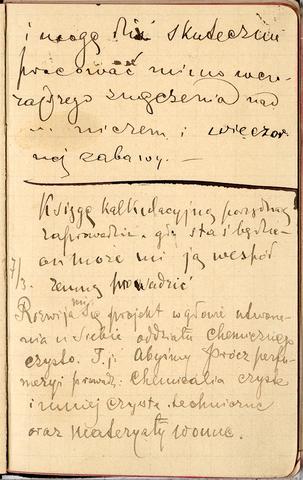 i mogę dziś skutecznie
pracować mimo wczo-
rajszego zmęczenia nad
niczem i wieczor
nej zabawy. —
Księgę kalkulacyjną porządną
zaprowadzić. gdy Staś będzie
on może mi ją wespół
7/3. zemną prowadzić
Rozwija mi się projekt w głowie utworze-
nia u siebie oddziału chemicznego
czysto. T.j. Abyśmy prócz perfu-
meryi prowadz: Chemicalia czyste
i mniej czyste. techniczne
oraz materyały wonne.